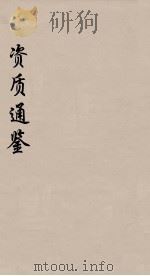 资质通鉴
mtoou.info